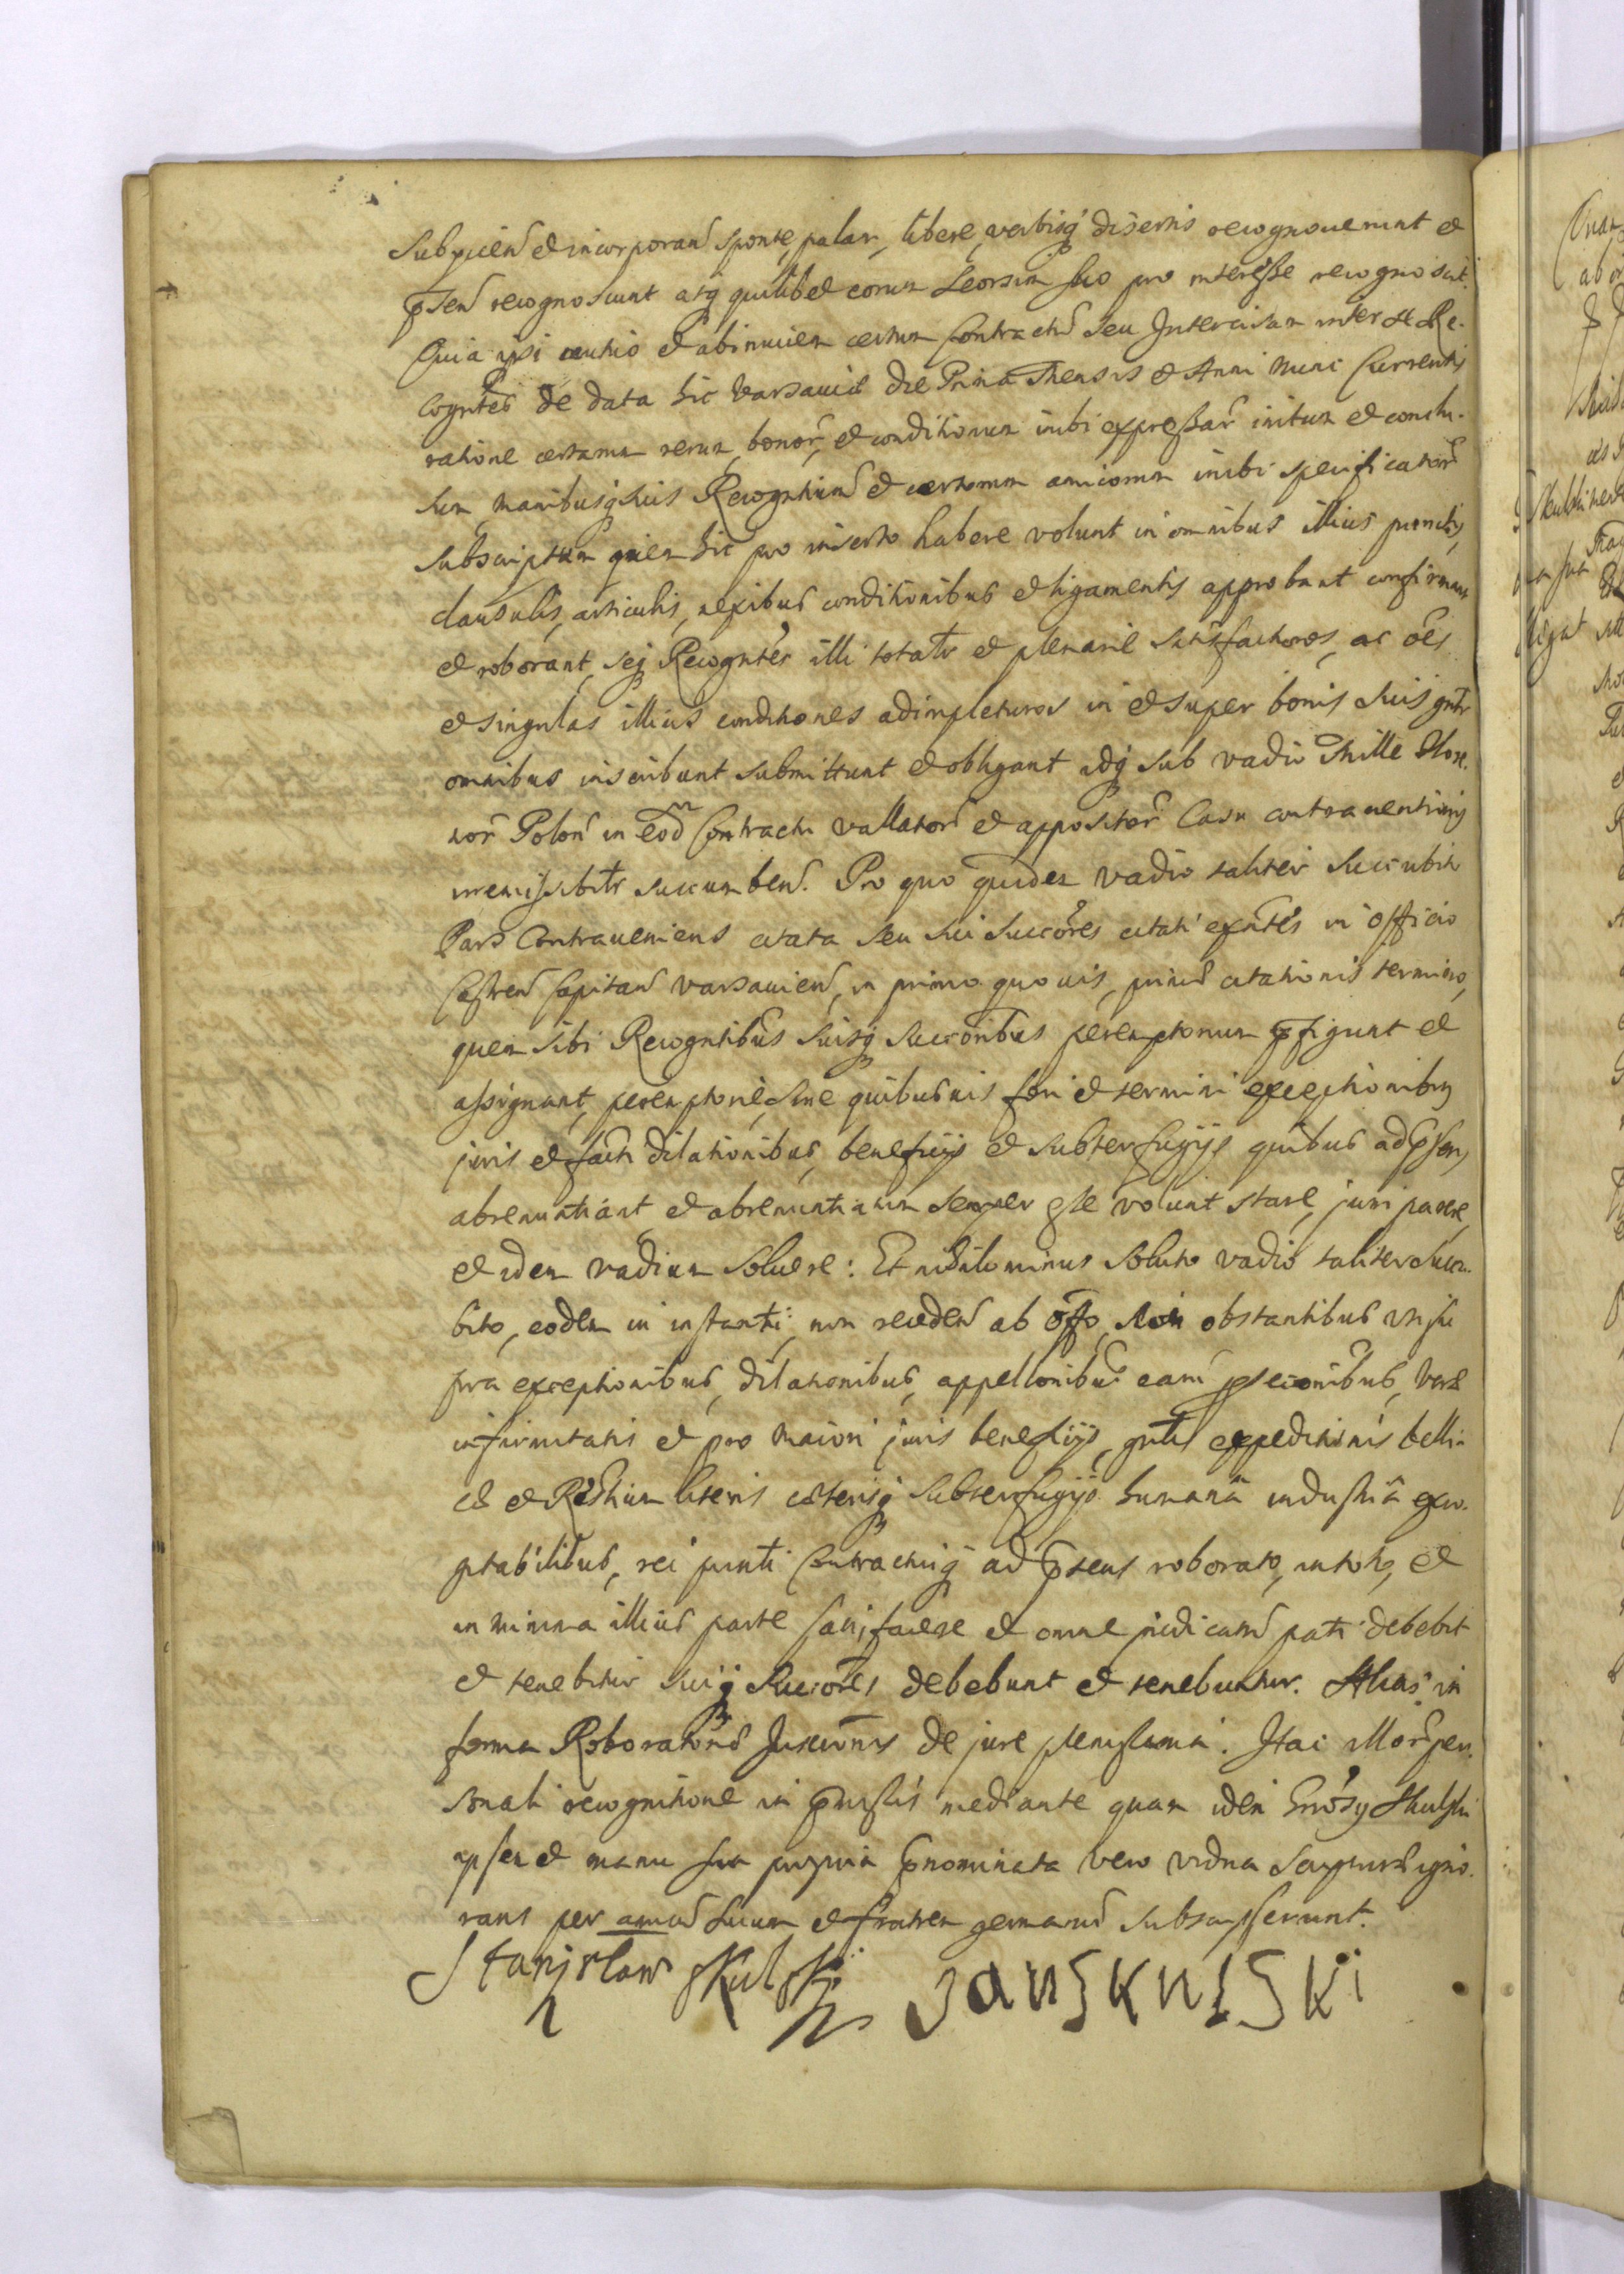 Subijcien et incorporan sponte, palam, libere, verbisq disertis recognouerunt et
psen recognoscunt atq quilibet eorum seorsim suo pro interesse recognoscit.
Quia ipsi mutuo et abinuicem certum Contractu seu Intercisam inter se Re-
cogntes de data hic Varsauiæ die Prima Mensis et Anni nunc Currentis
ratione certarum rerum, bonor, et conditionum inibi expressar initum et conclu-
sum manibusq suis Recogntium et certorum amicorum inibi specificator
subscriptum quem hic pro inserto habere volunt in omnibus illius punctis,
clausulis, articulis, nexibus conditionibus et ligamentis approbant confirmant
et roborant, seq Recogntes illi totalr et plenarie satisfacturos, ac oes
et singulas illius conditiones adimpleturos in et super bonis suis gnlr
omnibus inscribunt submittunt et obligant idq sub vadio Mille flore-
nor Polon in eod Contractu vallator et appositor Casu contrauentionis
irremissibilr succumben. Pro quo quidem vadio taliter succubito
Pars Contraueniens citata seu sui succores citati exntes in officio
Castren Capitan Varsauien, in primo quouis, primæ citationis termino,
quem sibi Recogntibus suisq succoribus peremptorium pfigunt et
assignant, peremptorie, sine quibusuis fori et termini exceptionibus
juris et facti dilationibus, beneficijs et subterfugijs quibus ad psens
abrenuntiant et abrenuntiatum semper esse volunt stare, juri parere,
et idem vadium soluere: Et nihilominus soluto vadio taliter succu-
bito, eodem in instanti, non receden ab offo, non obstantibus vt su-
pra exceptionibus, dilationibus, appellonibus earu psecionibus, veræ
infirmitatis et pro maiori juris beneficijs, gnlis expeditionis belli-
cæ et Rglium literis cæterisq subterfugijs humanâ industriâ exco-
gitabilibus, rei punti Contractuiq ad psens roborato, in toto, et
in minima illius parte satisfacere et omne judicatu pati debebit
et tenebitur suiq succores debebunt et tenebuntur. Alias in
forma Roborationis Inscionis de jure plenissima. Ita illor per-
sonali recognitione in pmissis mediante quam idem Grosy Skulski
ipsemet manu sua propria pnominata vero vidua scripturæ igno-
rans per amicu suum et fratrem germanu subscripserunt.
Stanisław Skulski Jan Skulski